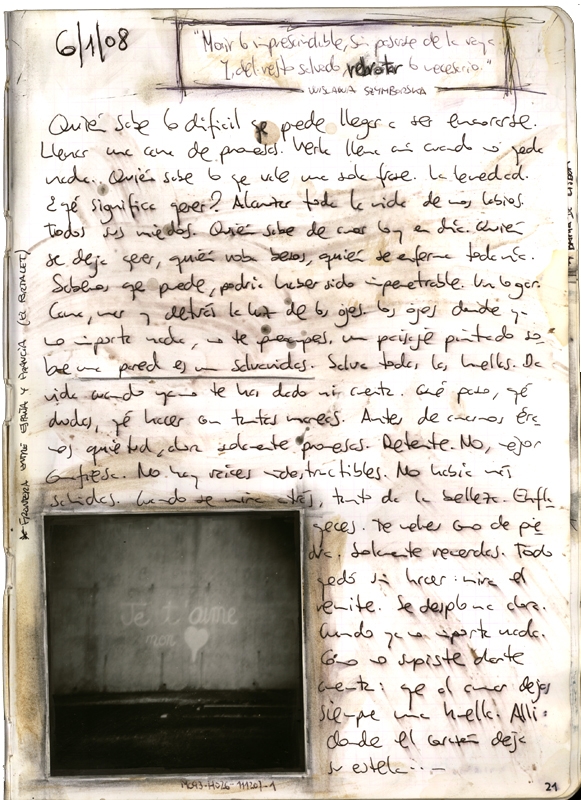 6/1/08
"Morir lo imprescindible, sin pasarse de la raya.
Y, del resto salvado rebrotar lo necesario."
WISLAWA SZYMBORSKA
Quién sabe lo difícil que puede llegar a ser enamorarse.
Llenar una cama de promesas. Verla llena aún cuando no queda
nada. Quién sabe lo que vale una sola frase. La levedad.
¿Qué significa querer? Alcanzar toda la vida de unos labios.
Todos sus miedos. Quién sabe de amor hoy en día. Quién
se deja querer, quién roba besos, quién se enferma todavía.
Sabemos que puede, podría haber sido impenetrable. Un lugar.
Cama, mar y detrás la luz de los ojos. Los ojos donde ya
no importa nada, no te preocupes, un paisaje pintado so
bre una pared es un salvavidas. Salva todas las huellas. De
vida cuando ya no te has dado ni cuenta. Qué pasa, qué
dudas, qué hacer con tantas mareas. Antes de amarnos éra
mos quietud, ahora solamente promesas. Detente. No, mejor
confiesa. No hay raíces indestructibles. No había más
salidas. Cuando se mira atrás, tanto da la belleza. Enfla
queces. Te vuelves como de pie
dra. Solamente recuerdas. Todo
quedó sin hacer: mira el
remite. Se desploma ahora.
Cuando ya no importa nada.
Cómo no supiste darte
cuenta: que el amor deja
siempre una huella. Allí:
donde el corazón deja
su estela...
Je t'aime
mon
FRONTERA ENTRE ESPAÑA Y FRANCIA (EL PORTALET)
21